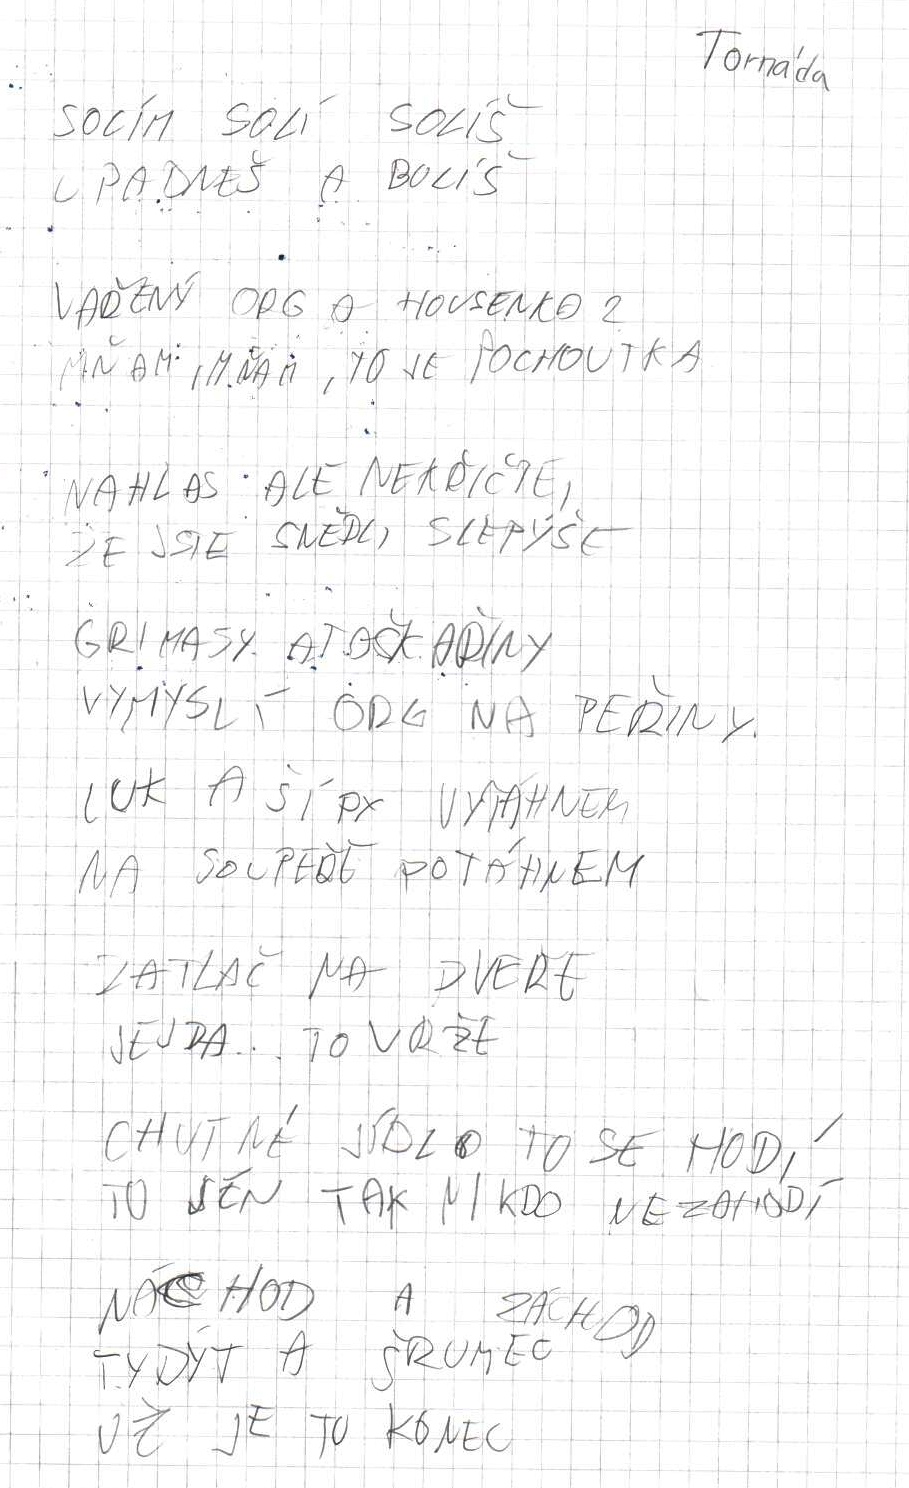 Tornáda
SOLÍM SOLÍ SOLÍŠ
UPADNEŠ A BOLÍŠ
VAŘENÝ ORG A HOUSENKA
MŇAM, MŇAM, TO JE POCHOUTKA
NAHLAS ALE NEKŘIČTE,
ŽE JSTE SNĚDLI SLEPÝŠE
GRIMASY A TAŠKAŘINY
VYMYSLÍ ORG NA PEŘINY.
LUK A ŠÍPY VYTÁHNEM
NA SOUPEŘE POTÁHNEM
ZATLAČ NA DVEŘE
JEJDA... TO VRŽE
CHUTNÉ JÍDLO TO SE HODÍ
TO JEN TAK NIKDO NEZAHODÍ
NÁCHOD A ZÁCHOD
TÝDÝT A ŠRUMEC
UŽ JE TU KONEC